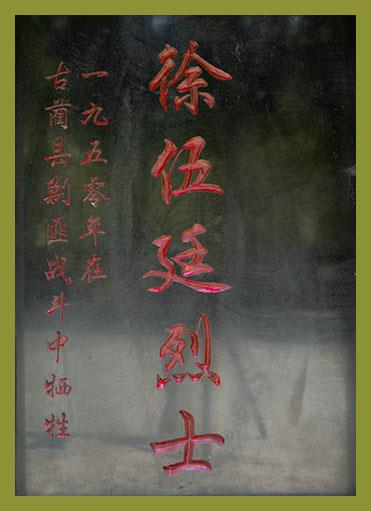 徐伍廷烈士
一九五零年在
古蔺县剿匪战斗中牺牲